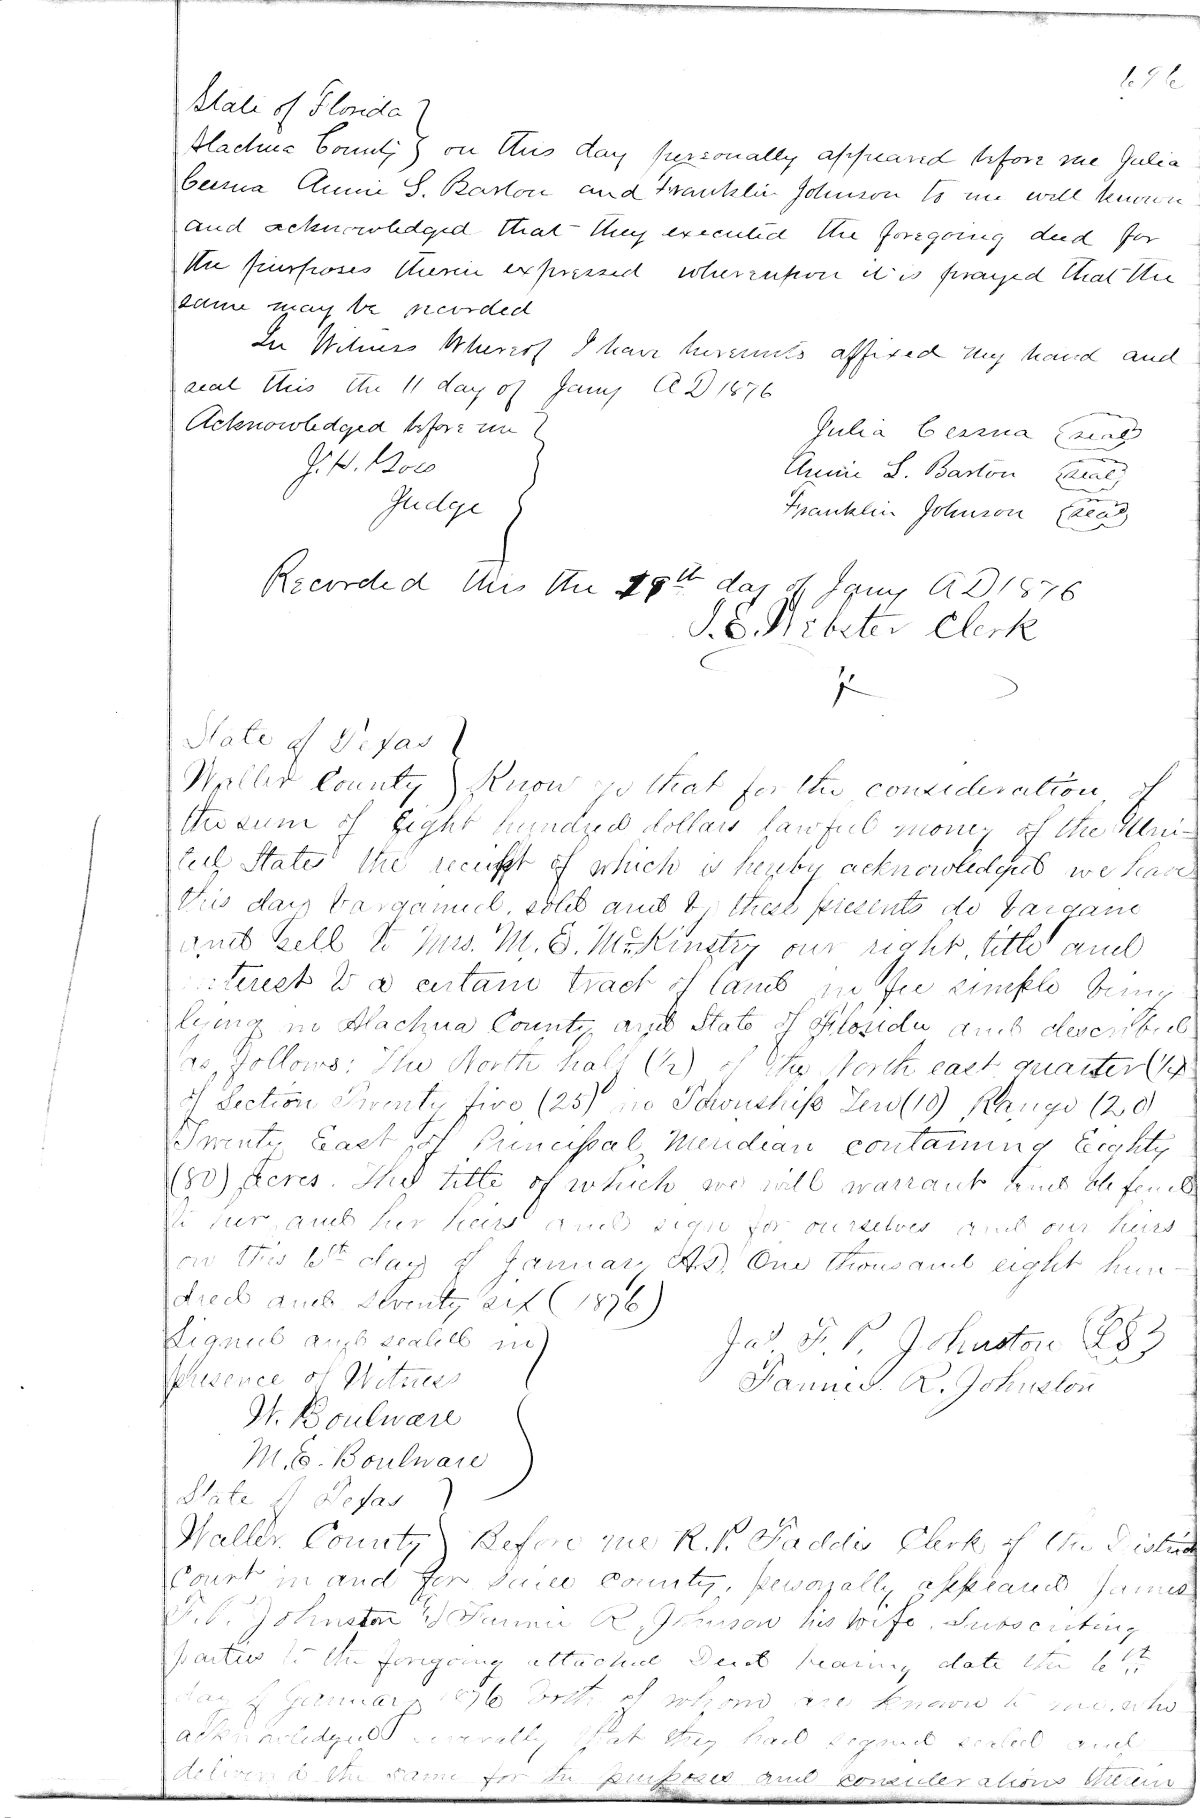 696
State of Florida }
Alachua County } on this day personally appeared before me Julia
Cessna Annie L. Barton and Franklin Johnson to me well known
and acknowledged that they executed the foregoing deed for
the purposes therein expressed whereupon it is prayed that the
same may be recorded
In Witness Whereof I have hereunto affixed my hand and
seal this the 11 day of Jany AD 1876
Acknowledged before me
Julia Cessna (seal)
J. H. Goss
Annie L. Barton (seal)
Judge
Franklin Johnson (seal)
Recorded this the 19th day of Jany AD 1876
J. E. Webster Clerk
State of Texas }
Waller County } Know ye that for the consideration of
the sum of Eight hundred dollars lawful money of the Uni-
ted States the receipt of which is hereby acknowledged we have
this day bargained, sold and by these presents do bargain
and sell to Mrs. M. E. McKinstry our right, title and
interest to a certain tract of land in fee simple being
lying in Alachua County and State of Florida and described
as follows: The North half (1/2) of the North east quarter (1/4)
of Section Twenty five (25) in Township Ten (10) Range (20)
Twenty East of Principal Meridian containing Eighty
(80) Acres. The title of which we will warrant and defend
to her and her heirs and sign for ourselves and our heirs
on this 6th day of January A.D. One thousand eight hun-
dred and seventy six (1876)
Signed and sealed in
presence of Witness
Jas. F. P. Johnston (LS)
Fannie R. Johnston
W. Boulware
M. E. Boulware
State of Texas }
Waller County } Before me R. P. Faddis Clerk of the District
Court in and for said county, personally appeared James
F. P. Johnston & Fannie R. Johnson his wife. Subscribing
parties to the foregoing attached Deed bearing date the 6th
day of January 1876 both of whom are known to me, who
acknowledged severally that they had signed sealed and
delivered the same for the purposes and considerations therein